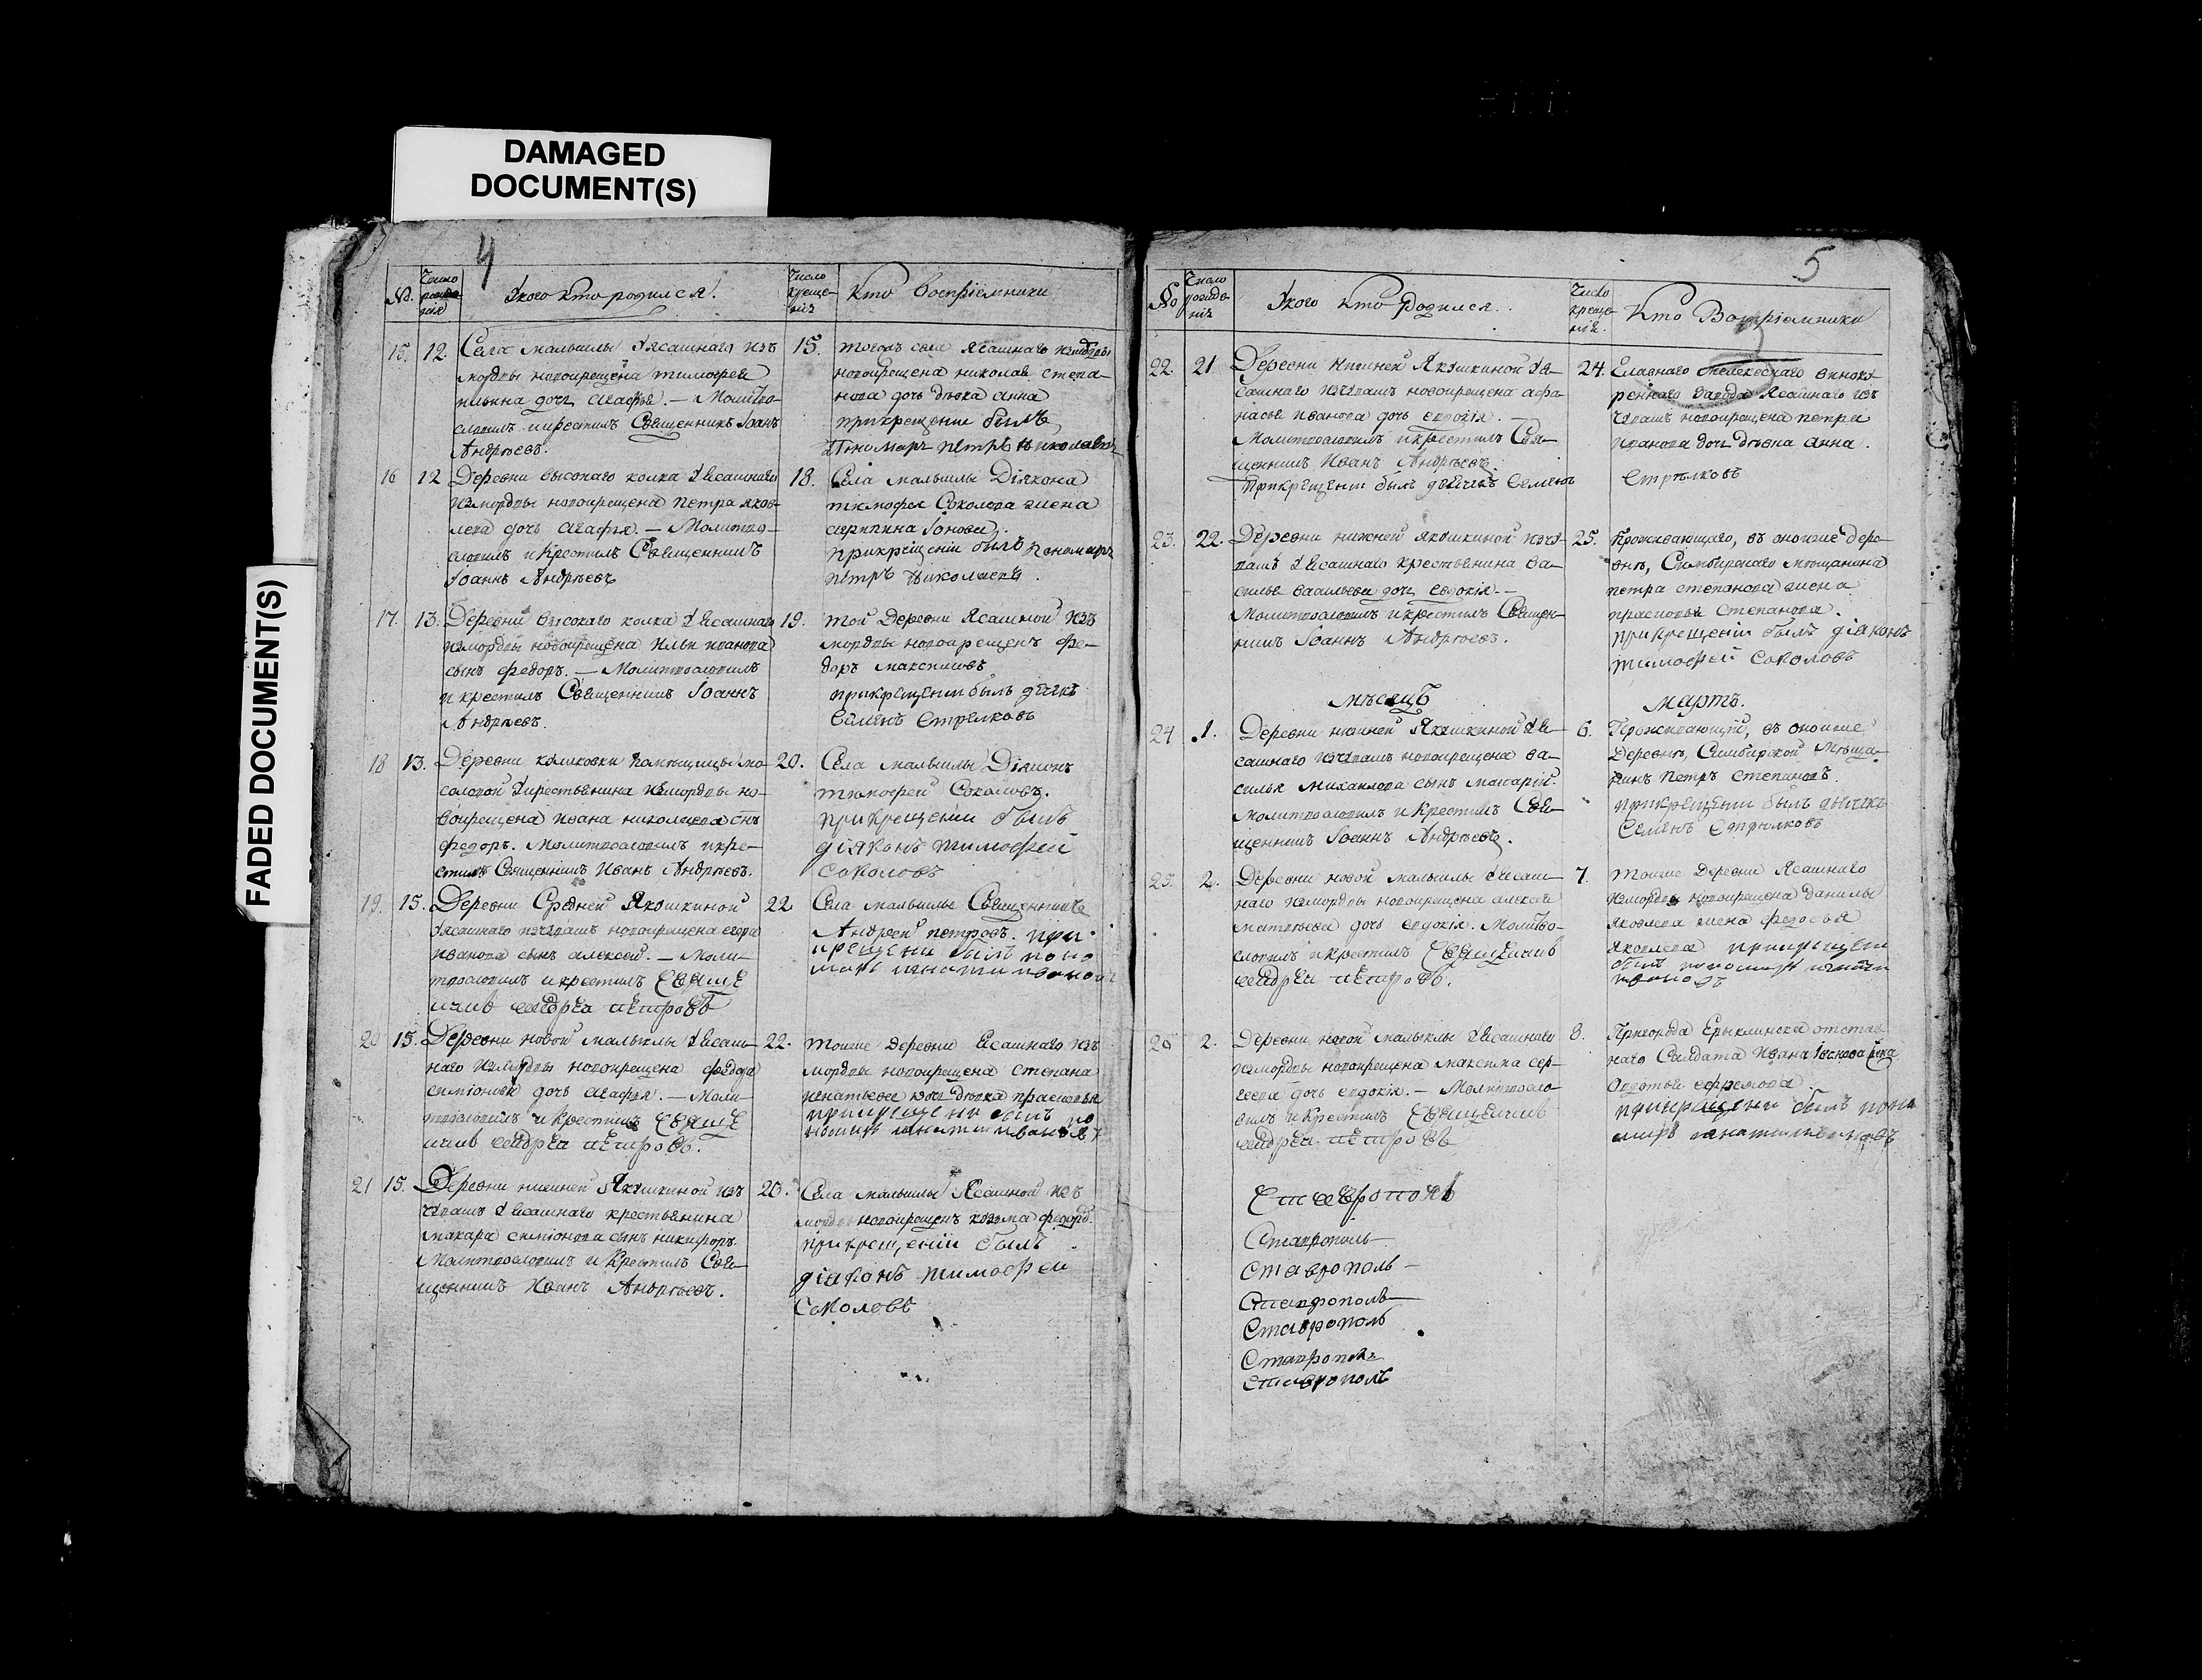 DAMAGED
DOCUMENT(S)
FADED DOCUMENT(S)
4
№
Число рожде-
нія
У кого кто родился.
Число
креще-
нія
Кто воспріемники
15. 12. Села малыклы Ѵ ясашнаго изъ
мордвы новокрещена тимофея
ильина дочь агафья. — Молитво-
словилъ и крестилъ Священникъ Іоанъ
Андрѣевъ.
15. тогожъ села ясашнаго изъ мордвы
новокрещена николая степа-
нова дочь дѣвка анна
при крещении былъ
Пономарь петръ николаевъ
16 12 Деревни высокаго колка Ѵ ясашнаго
из мордвы новокрещена петра яков-
лева дочь агафья. — Молитво-
словилъ и крестилъ Священникъ
Іоаннъ Андрѣевъ
18. Села малыклы Діякона
тимофея Соколова жена
агрипина Іонова.
при крещеніи былъ пономарь
петръ николаевъ.
17. 13. Деревни высокаго колка Ѵ ясашнаго
из мордвы новокрещена ильи иванова
сынъ федоръ. — Молитвословилъ
и крестилъ Священникъ Іоаннъ
Андрѣевъ.
19. той деревни ясашной изъ
мордвы новокрещенъ фе-
доръ максимовъ
при крещении былъ дьячкъ
Семенъ Стрелковъ
18 13. Деревни
Ѵ крестьянина из мордвы но-
вокрещена ивана николаева снъ
федоръ. Молитвословилъ и кре-
стилъ Священникъ Иванъ Андрѣевъ.
20. Села малыклы Діяконъ
тимофей Соколовъ.
при крещеніи былъ
діяконъ тимофей
соколовъ
19. 15. Деревни Средней Якушкиной
Ѵ ясашнаго из чувашъ новокрещена егора
иванова сынъ алексей. — Моли-
твословилъ и крестилъ Свяще
никъ андрей петровъ
22 Села малыклы Священникъ
Андрей петровъ. при
крещени былъ поно
марь игнати ивановъ
20 15. Деревни новой малыклы Ѵ ясаш-
наго из мордвы новокрещена федора
симіонова дочь агафья. — Моли-
твословилъ и крестилъ Свяще
никъ андрей петровъ.
22. тоиже деревни ясашнаго изъ
мордвы новокрещена степана
игнатьева дочь дѣвка прасковья
при крещени былъ по
номарь игнати ивановъ
21 15. Деревни нижней Якушкиной изъ
чувашъ Ѵ ясашнаго крестьянина
макара симіонова сынъ никифоръ.
Молитвословилъ и крестилъ Свя-
щенникъ Иванъ Андрѣевъ.
20. Села малыклы Ясашной изъ
мордвы новокрещенъ козма федоро.
при крещеніи былъ
діяконъ тимофеи
Соколовъ
5
№
Число
рожде-
нія
У кого кто родился.
Число
креще-
нія.
Кто Воспріемники
22. 21. Деревни нижней Якушкиной Ѵ Я-
сашнаго из чувашъ новокрещена афа-
насья иванова дочь евдокія. —
Молитвословилъ и крестилъ Свя-
щенникъ Иванъ Андрѣевъ.
При крещеніи былъ дьячкъ Семенъ
24. Главнаго мелекескаго виноку
реннаго завода Ясашнаго изъ
чувашъ новокрещена петра
иванова дочь дѣвка анна.
Стрѣлковъ
23. 22. Деревни нижней якушкиной из чу-
вашъ Ѵ ясашнаго крестьянина ва-
силья васильева дочь евдокія. —
Молитвословилъ и крестилъ Священ-
никъ Іоаннъ Андрѣевъ.
25. Проживающаго, въ оноиже дере-
внѣ, Симбирскаго мѣщанина
петра степанова жена
прасковья степанова.
при крещеніи былъ діяконъ
тимофей соколовъ
мѣсяцъ
мартъ.
24 1. Деревни нижней Якушкиной Ѵ Я-
сашнаго из чувашъ новокрещена ва-
силья михаилова сынъ макарій.
молитвословилъ и крестилъ Свя-
щенникъ Іоаннъ Андрѣевъ.
6. Проживающій, въ оноиже
деревнѣ, Симбирской мѣща-
нинъ петръ степановъ.
при крещеніи былъ дьячкъ
Семенъ Стрѣлковъ
25. 2. Деревни новой малыклы Ѵ ясаш
наго из мордвы новокрещена алексея
матвѣева дочь евдокія. Молитво-
словилъ и крестилъ Священникъ
андреи петровъ.
7. тоиже деревни Ясашнаго
из мордвы новокрещена данилы
яковлева жена федосья
яковлева при крещени
былъ пономарь игнати
ивановъ
26 2. Деревни новой малыклы Ѵ ясашнаго
из мордвы новокрещена максима сер-
геева дочь евдокія. — Молитвосло-
вилъ и крестилъ Священникъ
андреи петровъ
8. Пригорода Ерыклинска отстав
наго Салдата Ивана жена
Авдотья ефремова.
при крещени былъ поно
марь игнати ивановъ
Ставрополь
Ставрополь
Ставрополь
Ставрополь
Ставрополь
Ставрополь
Ставрополь